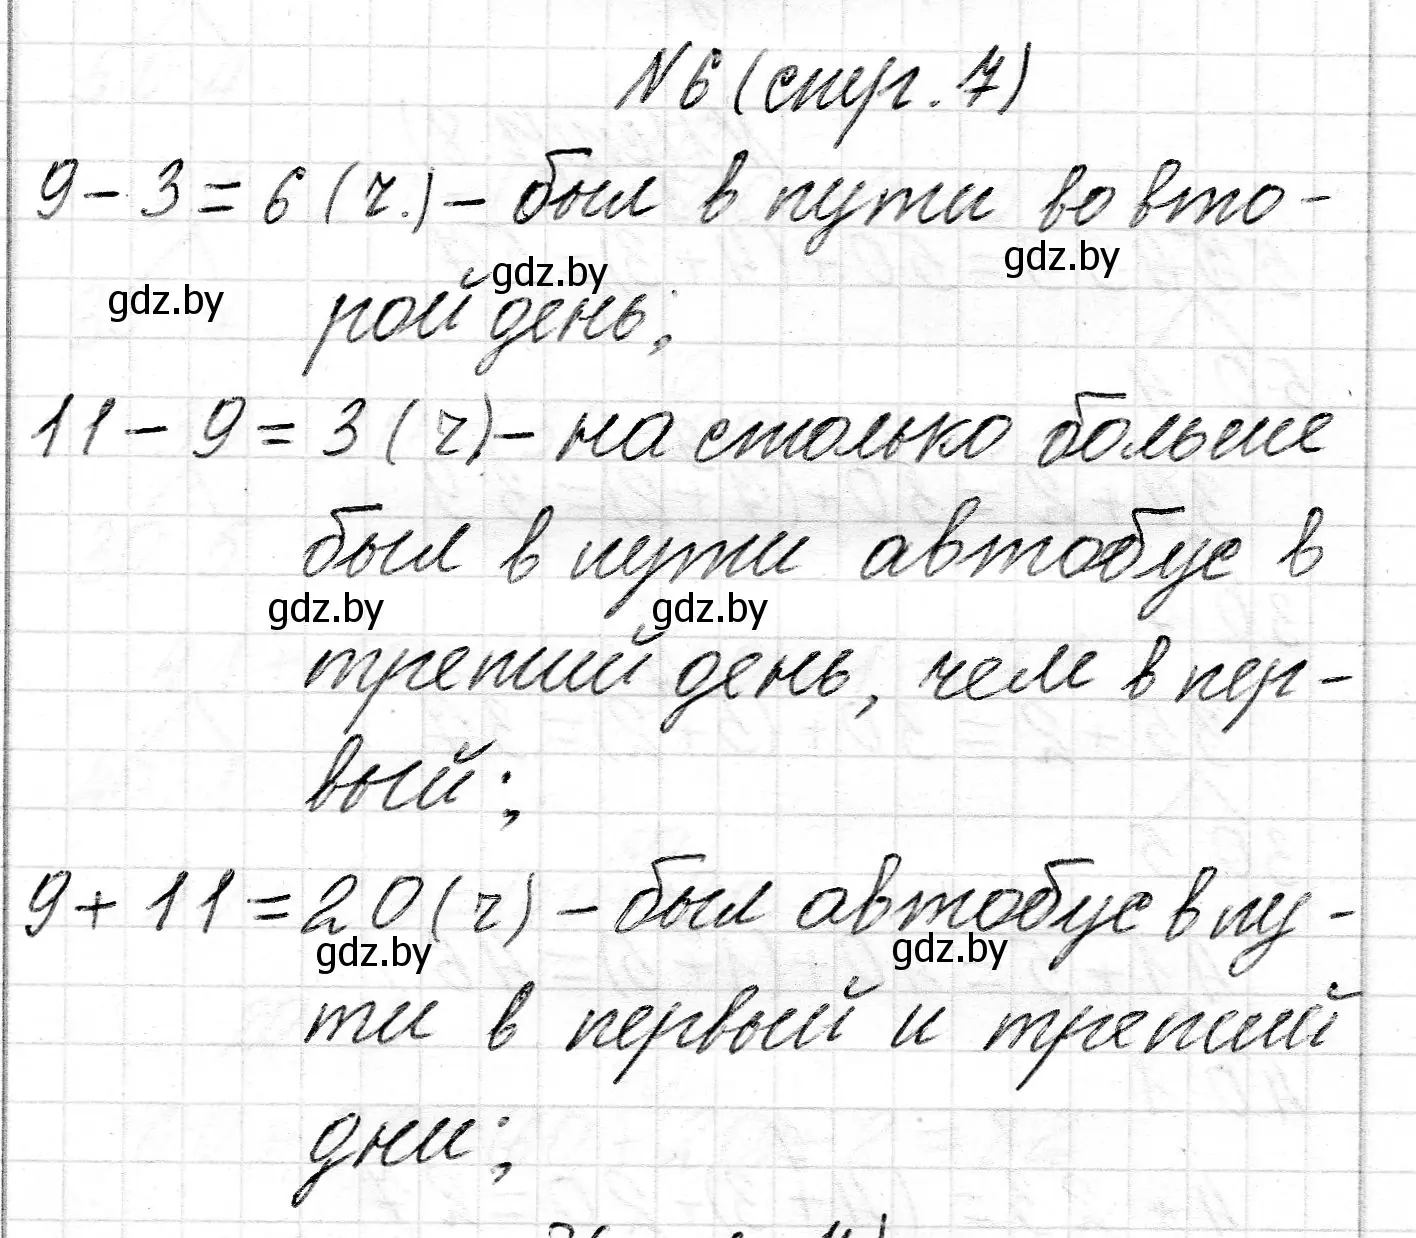 №6 (стр. 7)
9 - 3 = 6 (ч.) - был в пути во вто-
gdz.by gdz.by gdz.by
рой день;
11 - 9 = 3 (ч) - на столько больше
был в пути автобус в
gdz.by gdz.by
третий день, чем в пер-
вый;
9 + 11 = 20 (ч) - был автобус в пу-
gdz.by gdz.by
ти в первый и третий
дни;